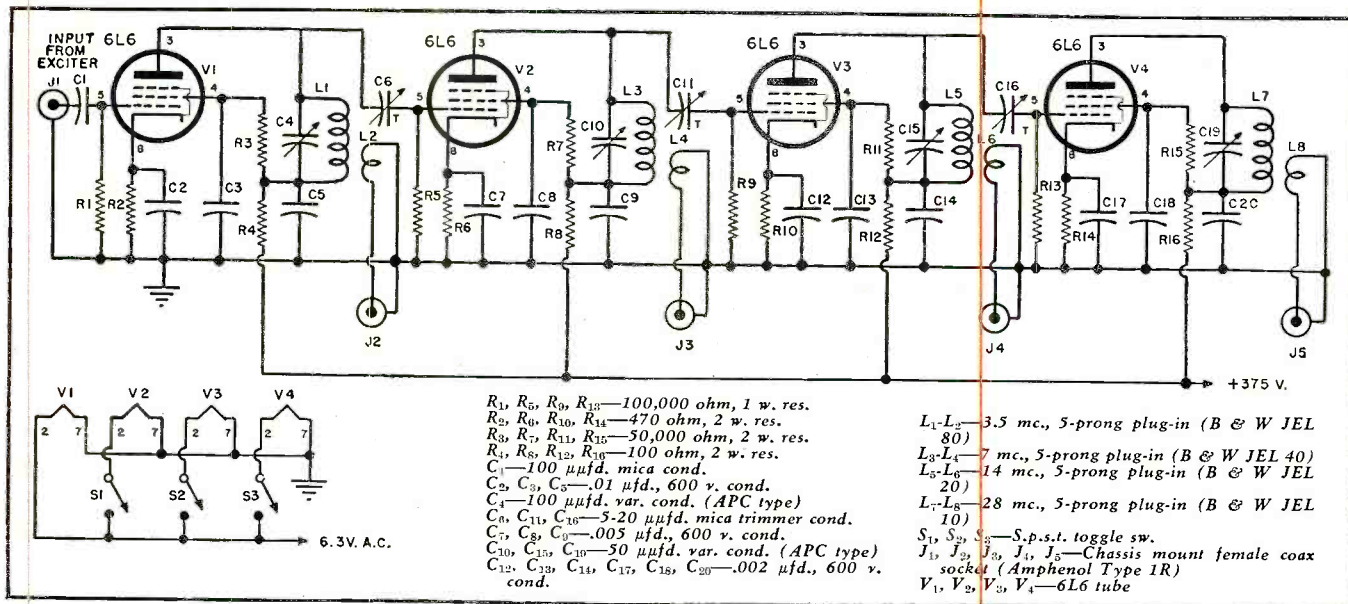 INPUT
FROM
EXCITER
J1
C1
5
6L6
3
V1
4
8
R1
R2
C2
C3
R3
R4
C4
L1
C5
L2
J2
C6
T
5
6L6
3
V2
4
8
R5
R6
C7
C8
R7
R8
C10
L3
C9
L4
J3
C11
T
5
6L6
3
V3
4
8
R9
R10
C12
C13
R11
R12
C15
L5
C14
L6
J4
C16
T
5
6L6
3
V4
4
8
R13
R14
C17
C18
R15
R16
C19
L7
C20
L8
J5
+375 V.
V1
V2
V3
V4
2
7
2
7
2
7
2
7
S1
S2
S3
6.3V. A.C.
R₁, R₅, R₉, R₁₃—100,000 ohm, 1 w. res.
R₂, R₆, R₁₀, R₁₄—470 ohm, 2 w. res.
R₃, R₇, R₁₁, R₁₅—50,000 ohm, 2 w. res.
R₄, R₈, R₁₂, R₁₆—100 ohm, 2 w. res.
C₁—100 μμfd. mica cond.
C₂, C₃, C₅—.01 μfd., 600 v. cond.
C₄—100 μμfd. var. cond. (APC type)
C₆, C₁₁, C₁₆—5-20 μμfd. mica trimmer cond.
C₇, C₈, C₉—.005 μfd., 600 v. cond.
C₁₀, C₁₅, C₁₉—50 μμfd. var. cond. (APC type)
C₁₂, C₁₃, C₁₄, C₁₇, C₁₈, C₂₀—.002 μfd., 600 v.
cond.
L₁-L₂—3.5 mc., 5-prong plug-in (B & W JEL
80)
L₃-L₄—7 mc., 5-prong plug-in (B & W JEL 40)
L₅-L₆—14 mc., 5-prong plug-in (B & W JEL
20)
L₇-L₈—28 mc., 5-prong plug-in (B & W JEL
10)
S₁, S₂, S₃—S.p.s.t. toggle sw.
J₁, J₂, J₃, J₄, J₅—Chassis mount female coax
socket (Amphenol Type 1R)
V₁, V₂, V₃, V₄—6L6 tube